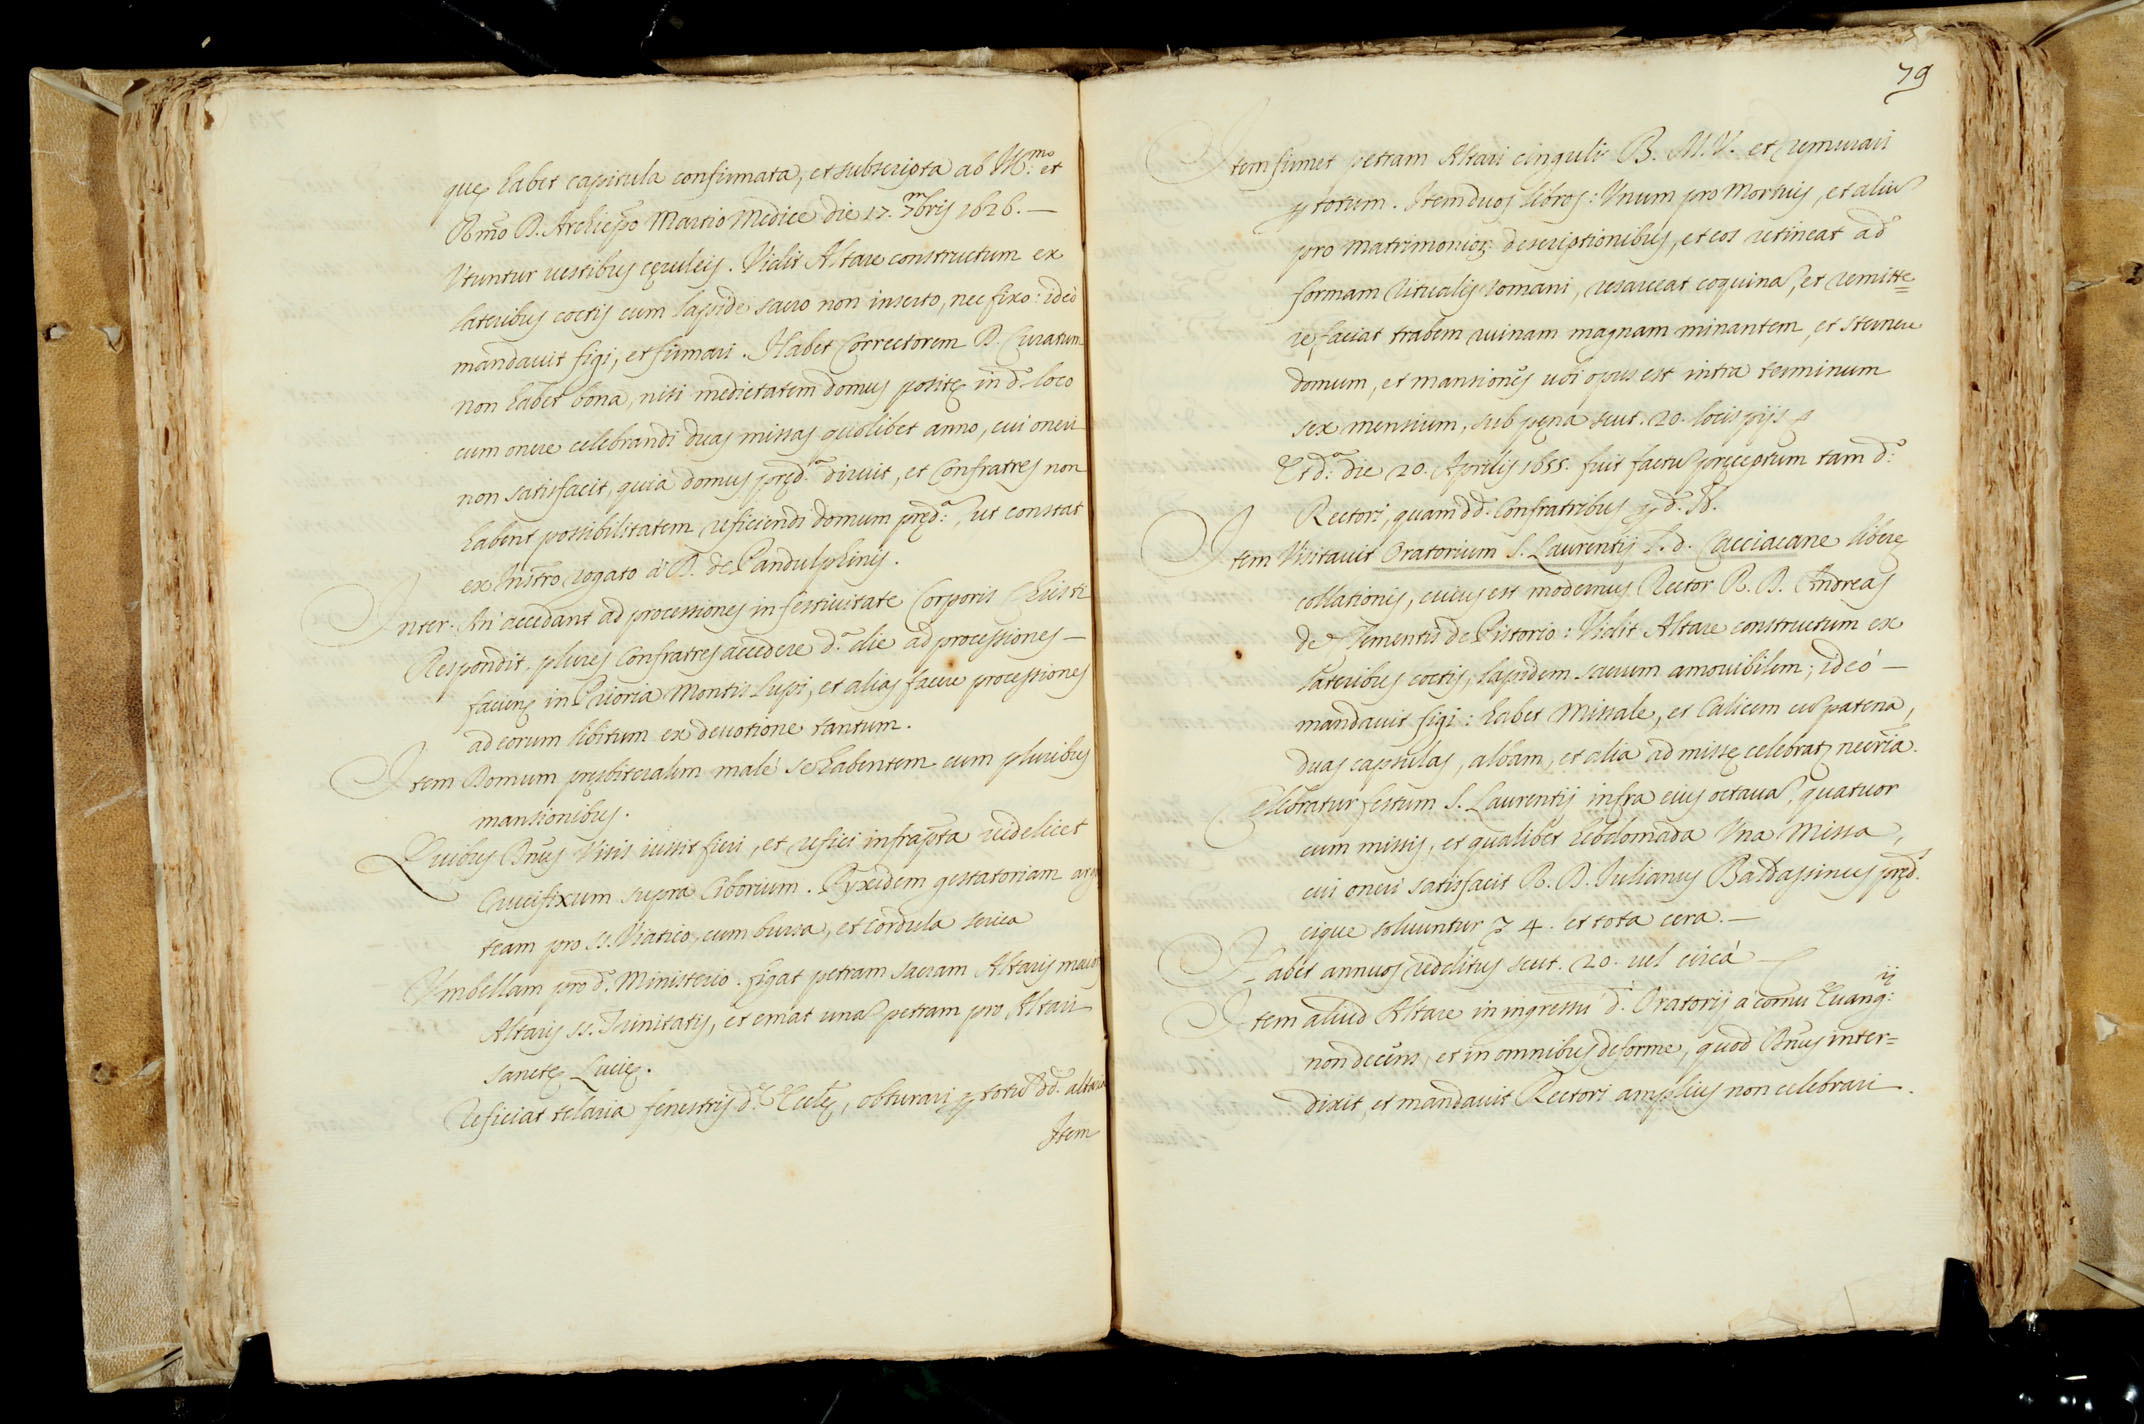 quę habet capitula confirmata, et subscripta ab Ill.mo et
R.mo D. Archiepõ Martio Medice die 17. 7mbris 1626. —
Utuntur vestibus cęruleis. Vidit Altare constructum ex
lateribus coctis cum lapide sacro non inserto, nec fixo: ideò
mandavit figi, et firmari. Habet Correctorem D. Curatum
non habet bona, nisi medietatem domus positę in d.o loco
cum onere celebrandi duas missas quolibet anno, cui oneri
non satisfacit, quia domus pręd.ta diruit, et Confratres non
habent possibilitatem reficiendi domum pręd.a, ut constat
ex Instro rogato à D. de Pandulphinis.
Inter. An accedant ad processiones in festivitate Corporis Christi
Respondit plures Confratres accedere d.a die ad processiones —
faciend in Prioria Montis Lupi, et alias facere processiones
ad eorum libitum ex devotione tantum.
Item Domum pręsbiteralem malè se habentem cum pluribus
mansionibus.
Quibus Dnus Visis iussit fieri, et refici infrapta videlicet
Crucifixum supra Ciborium. Pyxidem gestatoriam arg
team pro SS. Viatico, cum bursa, et cordula serica
Umbellam pro d.o Ministerio. figat petram sacram Altaris maior
Altaris SS. Trinitatis, et emat unã petram pro Altari
sanctę Lucię.
Reficiat telaria fenestris d.ę Ecclę, obturari p totũ dd. altaria
Item
79
Item firmet petram Altari cinguli B. M. V. et remurari
p totum. Item duos libros: Unum pro Mortuis, et aliũ
pro Matrimonior descriptionibus, et eos retineat ad
formam Ritualis Romani, resarceat coquinã, et remitte=
re faciat trabem ruinam magnam minantem, et sternere
domum, et mansiones ubi opus est intra terminum
sex mensium, sub pęna scut. 20. locis pijs
Et d.a die 20. Aprilis 1655. fuit factũ pręceptum tam d.o
Rectori, quam dd. Confratribus p d. N.
Item Visitavit Oratorium S. Laurentij L. d. Cacciacane liberę
collationis, cuius est modernus Rector R. D. Andreas
de Clementis de Pistorio: Vidit Altare constructum ex
lateribus coctis, lapidem sacrum amovibilem; ideò —
mandavit figi: habet Missale, et Calicem cũ patena,
duas capsulas, albam, et alia ad missę celebrat necria.
Celebratur festum S. Laurentij infra eius octavã, quatuor
cum missis, et qualibet hebdomada Una Missa,
cui oneri satisfacit R. D. Iulianus Baldassinus pręd.s
eique solvuntur 4. et tota cera. —
Habet annuos redditus scut. 20. vel circà —
Item aliud Altare in ingressu d.i Oratorij a cornu Evang.ij
non decens, et in omnibus deforme, quod Dnus inter=
dixit, et mandavit Rectori amplius non celebrari.